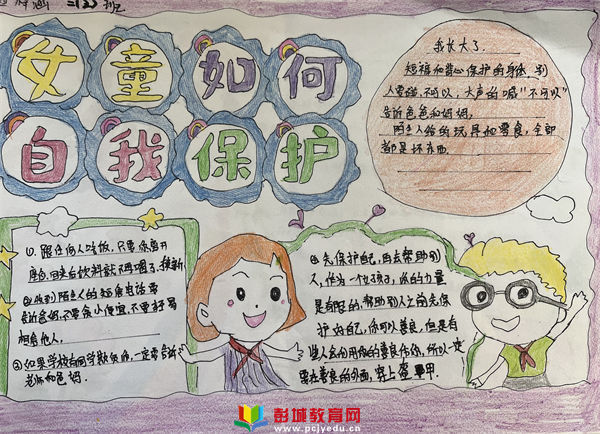 三(3)班
女童如何
自我保护
我长大了
短裙和背心保护的身体,别
人要碰,不可以,大声的喊"不可以"
告诉爸爸和妈妈,
陌生人给的玩具和零食,全部
都是坏东西.
①.跟任何人吃饭,只要你离开
座位,回来后饮料就不再喝了,换新
②收到陌生人的短信电话要
告诉爸妈,不要贪小便宜,不要轻易
相信他人,
③如果学校有同学欺负你,一定要告诉
老师和爸妈.
④先保护自己,再去帮助别
人,作为一个女孩子,你的力量
是有限的,帮助别人之前先保
护好自己,你可以善良,但是有
些人会利用你的善良伤你,所以一定
要在善良的外面,穿上盔甲.
彭城教育网
www.pcjyedu.cn